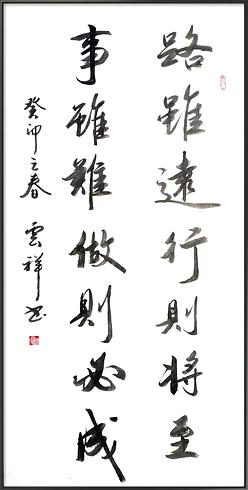 路雖遠行則將至
事雖難做則必成
癸卯之春 雲祥書